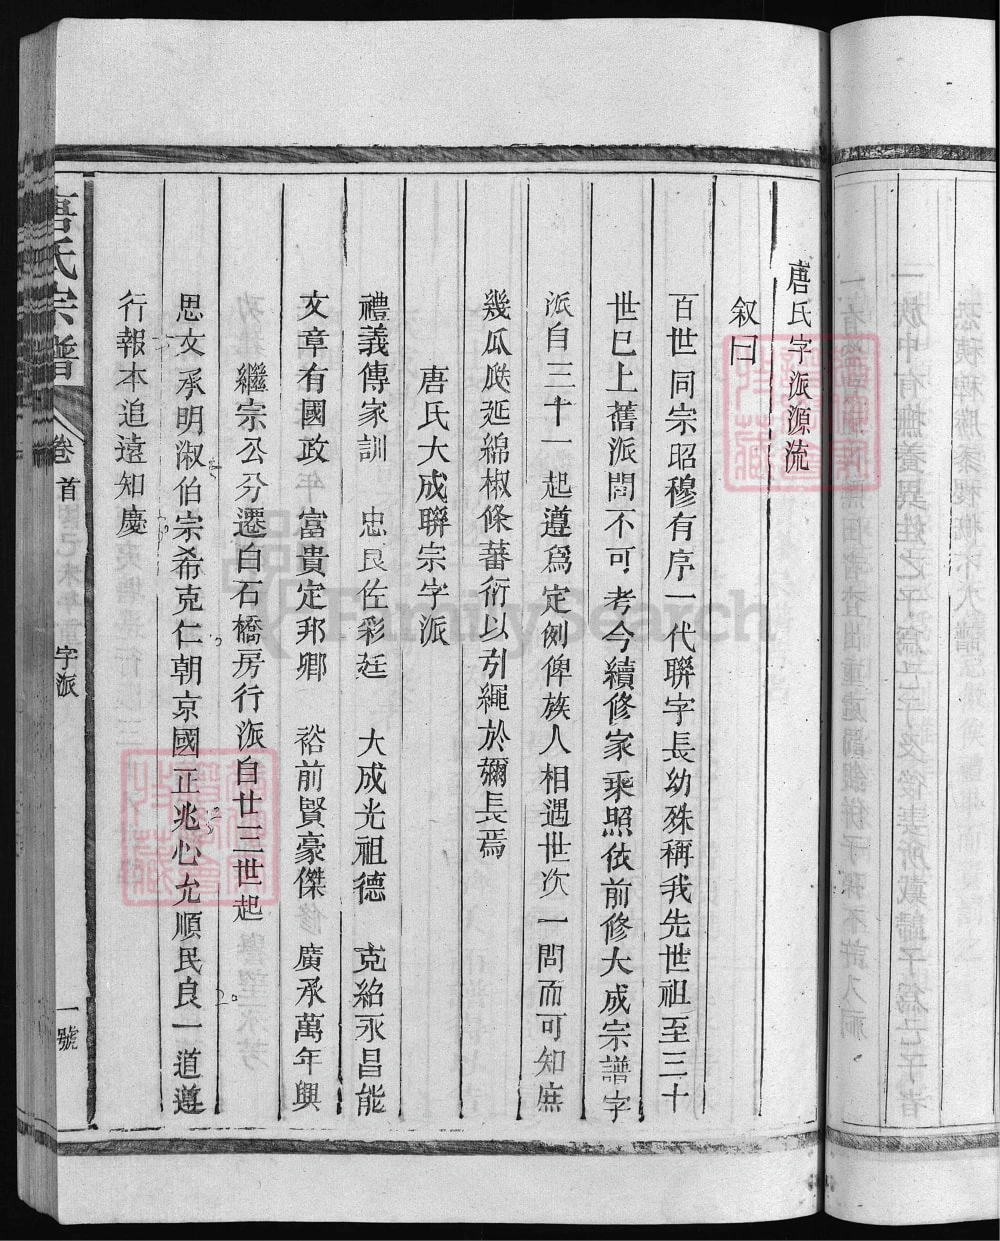 唐氏字派源流
叙曰
百世同宗昭穆有序一代聯字長幼殊稱我先世祖至三十
世已上舊派問不可考今續修家乘照依前修大成宗譜字
派自三十一起遵爲定例俾族人相遇世次一問而可知庶
幾瓜瓞延綿椒條蕃衍以引繩於彌長焉
唐氏大成聯宗字派
禮義傳家訓 忠良佐彩廷 大成光祖德 克紹永昌能
文章有國政 富貴定邦鄉 裕前賢豪傑 廣承萬年興
繼宗公分遷白石橋房行派自廿三世起
思文承明淑伯宗希克仁朝京國正兆心允順民良一道遵
行報本追遠知慶
唐氏宗譜
卷首
字派
一號
FamilySearch